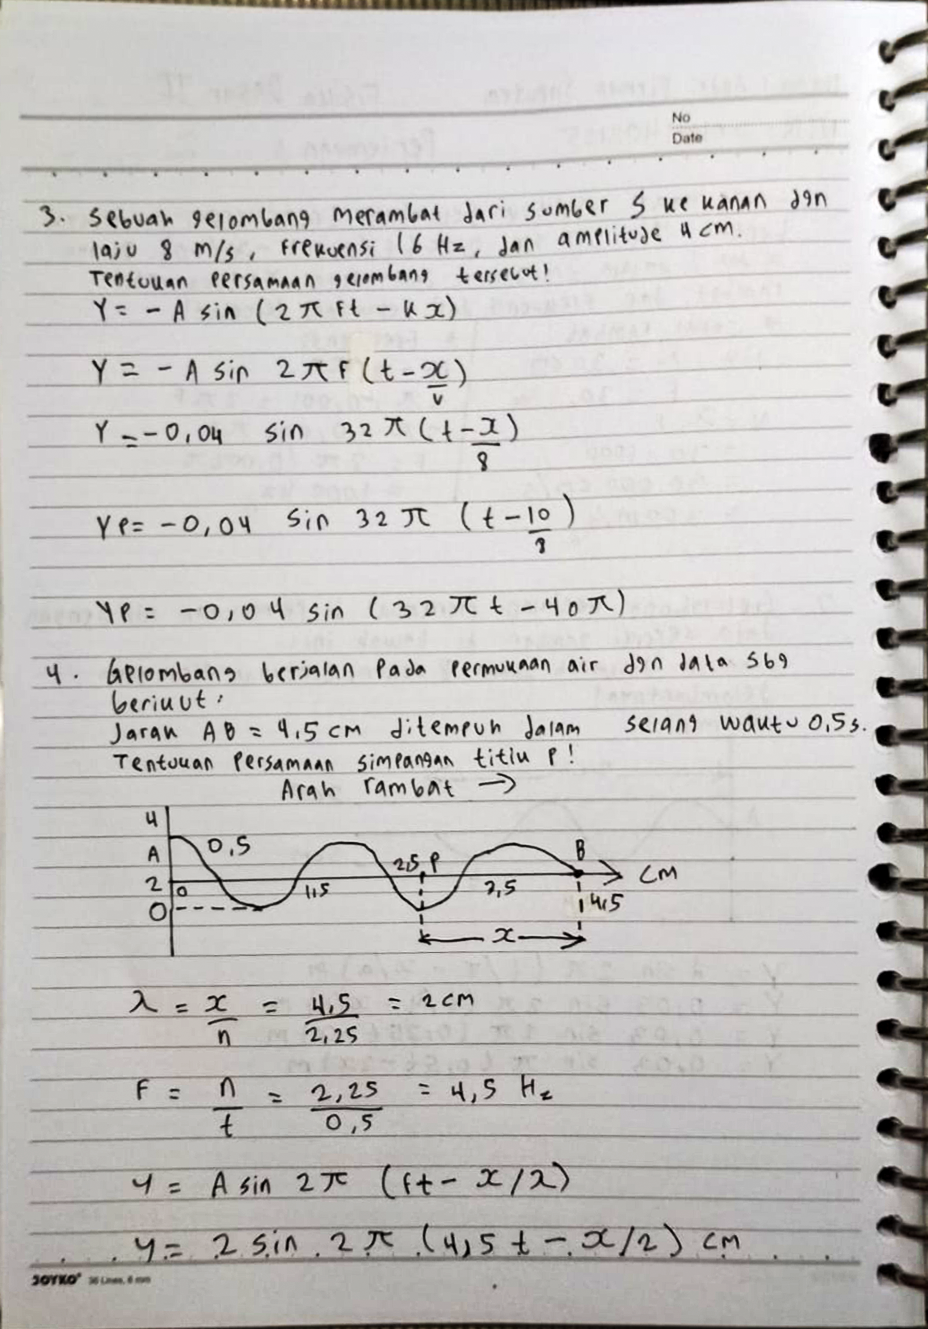 No
Date
3. Sebuah gelombang merambat dari sumber S ke kanan dgn
laju 8 m/s, frekuensi 16 Hz, dan amplitude 4 cm.
Tentukan persamaan gelombang tersebut!
Y = - A sin (2π ft - kx)
Y = - A sin 2πf (t - x/v)
Y = -0,04 sin 32π (t - x/8)
YP = -0,04 sin 32π (t - 10/8)
YP = -0,04 sin (32πt - 40π)
4. Gelombang berjalan pada permukaan air dgn data sbg
berikut:
Jarak AB = 4,5 cm ditempuh dalam selang waktu 0,5s.
Tentukan persamaan simpangan titik P!
Arah rambat →
4
A 0,5 2,5 P B
2 0 1,5 3,5 cm
0 4,5
x
λ = x/n = 4,5/2,25 = 2 cm
F = n/t = 2,25/0,5 = 4,5 Hz
y = A sin 2π (ft - x/λ)
y = 2 sin 2π (4,5 t - x/2) cm
JOYKO 36 Lines, 6 mm